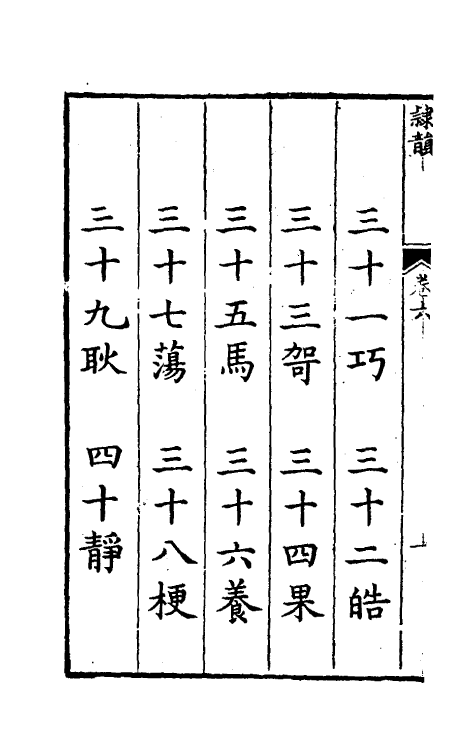 隸韻 卷六 一
三十一巧 三十二皓
三十三哿 三十四果
三十五馬 三十六養
三十七蕩 三十八梗
三十九耿 四十靜